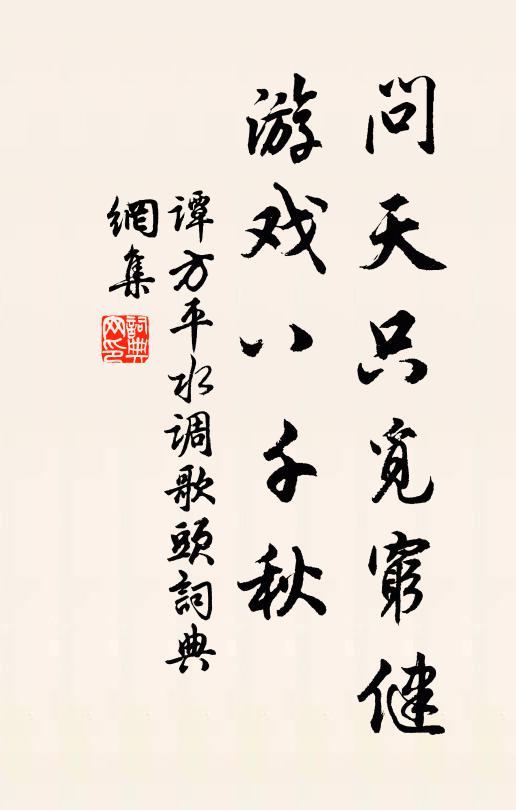 问天只觅穷健
游戏八千秋
谭方平水调歌头詞典
網集
詞典
网印